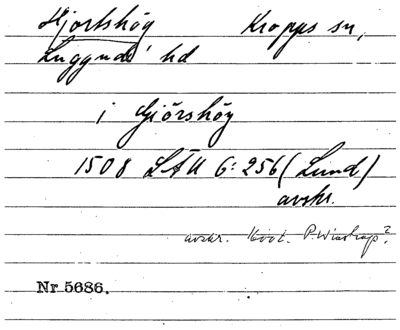 Hjortshög Kropps sn,
Luggude hd
i Hjörshög
1508 LÄU 6:256 (Lund)
avskr.
avskr. P. Winstrup?
Nr 5686.